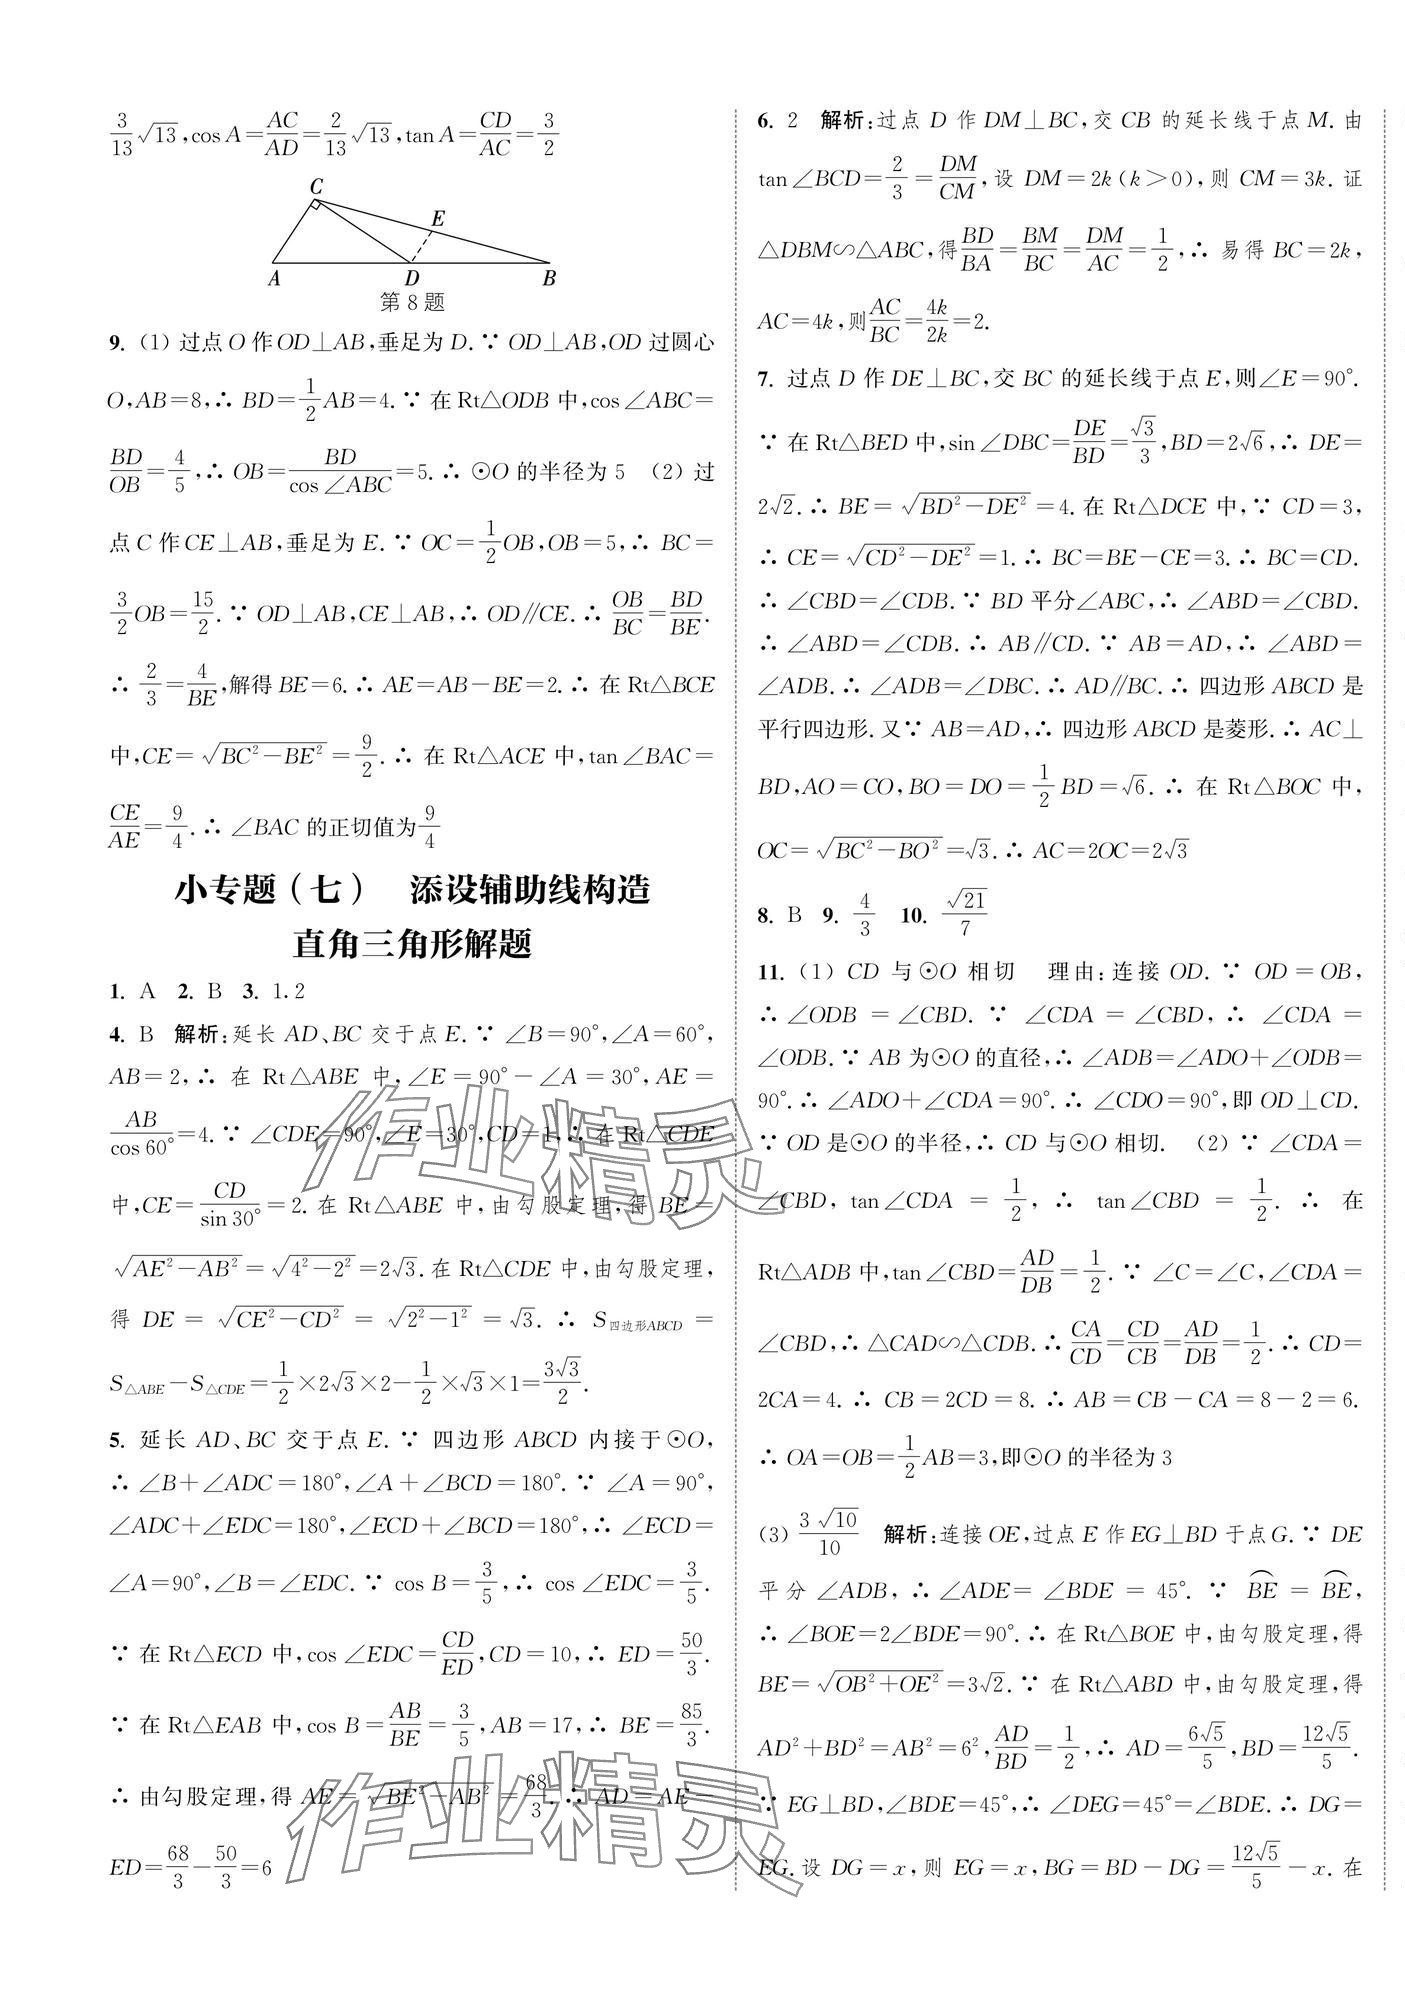 3/13 √13, cos A=AC/AD=2/13 √13, tan A=CD/AC=3/2
C
E
A D B
第8题
9. (1) 过点O作OD⊥AB,垂足为D.∵ OD⊥AB,OD过圆心
O,AB=8,∴ BD=1/2 AB=4.∵ 在Rt△ODB中,cos∠ABC=
BD/OB=4/5,∴ OB=BD/cos∠ABC=5.∴ ⊙O的半径为5 (2) 过
点C作CE⊥AB,垂足为E.∵ OC=1/2 OB,OB=5,∴ BC=
3/2 OB=15/2.∵ OD⊥AB,CE⊥AB,∴ OD∥CE.∴ OB/BC=BD/BE.
∴ 2/3=4/BE,解得BE=6.∴ AE=AB-BE=2.∴ 在Rt△BCE
中,CE=√(BC²-BE²)=9/2.∴ 在Rt△ACE中,tan∠BAC=
CE/AE=9/4.∴ ∠BAC的正切值为9/4
小专题(七) 添设辅助线构造
直角三角形解题
1. A 2. B 3. 1.2
4. B 解析:延长AD、BC交于点E.∵ ∠B=90°,∠A=60°,
AB=2,∴ 在Rt△ABE中,∠E=90°-∠A=30°,AE=
AB/cos60°=4.∵ ∠CDE=90°,∠E=30°,CD=1,∴ 在Rt△CDE
中,CE=CD/sin30°=2.在Rt△ABE中,由勾股定理,得BE=
√(AE²-AB²)=√(4²-2²)=2√3.在Rt△CDE中,由勾股定理,
得DE=√(CE²-CD²)=√(2²-1²)=√3.∴ S四边形ABCD=
S△ABE-S△CDE=1/2×2√3×2-1/2×√3×1=3√3/2.
5. 延长AD、BC交于点E.∵ 四边形ABCD内接于⊙O,
∴ ∠B+∠ADC=180°,∠A+∠BCD=180°.∵ ∠A=90°,
∠ADC+∠EDC=180°,∠ECD+∠BCD=180°,∴ ∠ECD=
∠A=90°,∠B=∠EDC.∵ cos B=3/5,∴ cos∠EDC=3/5.
∵ 在Rt△ECD中,cos∠EDC=CD/ED,CD=10,∴ ED=50/3.
∵ 在Rt△EAB中,cos B=AB/BE=3/5,AB=17,∴ BE=85/3.
∴ 由勾股定理,得AE=√(BE²-AB²)=68/3.∴ AD=AE-
ED=68/3-50/3=6
6. 2 解析:过点D作DM⊥BC,交CB的延长线于点M.由
tan∠BCD=2/3=DM/CM,设DM=2k(k>0),则CM=3k.证
△DBM∽△ABC,得BD/BA=BM/BC=DM/AC=1/2,∴ 易得BC=2k,
AC=4k,则AC/BC=4k/2k=2.
7. 过点D作DE⊥BC,交BC的延长线于点E,则∠E=90°.
∵ 在Rt△BED中,sin∠DBC=DE/BD=√3/3,BD=2√6,∴ DE=
2√2.∴ BE=√(BD²-DE²)=4.在Rt△DCE中,∵ CD=3,
∴ CE=√(CD²-DE²)=1.∴ BC=BE-CE=3.∴ BC=CD.
∴ ∠CBD=∠CDB.∵ BD平分∠ABC,∴ ∠ABD=∠CBD.
∴ ∠ABD=∠CDB.∴ AB∥CD.∵ AB=AD,∴ ∠ABD=
∠ADB.∴ ∠ADB=∠DBC.∴ AD∥BC.∴ 四边形ABCD是
平行四边形.又∵ AB=AD,∴ 四边形ABCD是菱形.∴ AC⊥
BD,AO=CO,BO=DO=1/2 BD=√6.∴ 在Rt△BOC中,
OC=√(BC²-BO²)=√3.∴ AC=2OC=2√3
8. B 9. 4/3 10. √21/7
11. (1) CD与⊙O相切 理由:连接OD.∵ OD=OB,
∴ ∠ODB=∠CBD.∵ ∠CDA=∠CBD,∴ ∠CDA=
∠ODB.∵ AB为⊙O的直径,∴ ∠ADB=∠ADO+∠ODB=
90°.∴ ∠ADO+∠CDA=90°.∴ ∠CDO=90°,即OD⊥CD.
∵ OD是⊙O的半径,∴ CD与⊙O相切. (2) ∵ ∠CDA=
∠CBD,tan∠CDA=1/2,∴ tan∠CBD=1/2.∴ 在
Rt△ADB中,tan∠CBD=AD/DB=1/2.∵ ∠C=∠C,∠CDA=
∠CBD,∴ △CAD∽△CDB.∴ CA/CD=CD/CB=AD/DB=1/2.∴ CD=
2CA=4.∴ CB=2CD=8.∴ AB=CB-CA=8-2=6.
∴ OA=OB=1/2 AB=3,即⊙O的半径为3
(3) 3√10/10 解析:连接OE,过点E作EG⊥BD于点G.∵ DE
平分∠ADB,∴ ∠ADE=∠BDE=45°.∵ ⌒BE=⌒BE,
∴ ∠BOE=2∠BDE=90°.∴ 在Rt△BOE中,由勾股定理,得
BE=√(OB²+OE²)=3√2.∵ 在Rt△ABD中,由勾股定理,得
AD²+BD²=AB²=6²,AD/BD=1/2,∴ AD=6√5/5,BD=12√5/5.
∵ EG⊥BD,∠BDE=45°,∴ ∠DEG=45°=∠BDE.∴ DG=
EG.设DG=x,则EG=x,BG=BD-DG=12√5/5-x.在
作业精灵
作业精灵